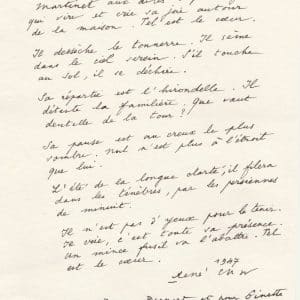 Martinet aux ailes
qui vire et crie sa joie autour
de la maison. Tel est le cœur.
Il dessèche le tonnerre. Il sème
dans le ciel serein. S'il touche
au sol, il se déchire.
Sa répartie est l'hirondelle. Il
déteste la familière. Que vaut
dentelle de la tour?
Sa pause est au creux le plus
sombre. Nul n'est plus à l'étroit
que lui.
L'été de la longue clarté, il filera
dans les ténèbres, par les persiennes
de minuit.
Il n'est pas d'yeux pour le tenir.
Il crie, c'est toute sa présence.
Un mince fusil va l'abattre. Tel
est le cœur.
1947
René Char
pour Ginette